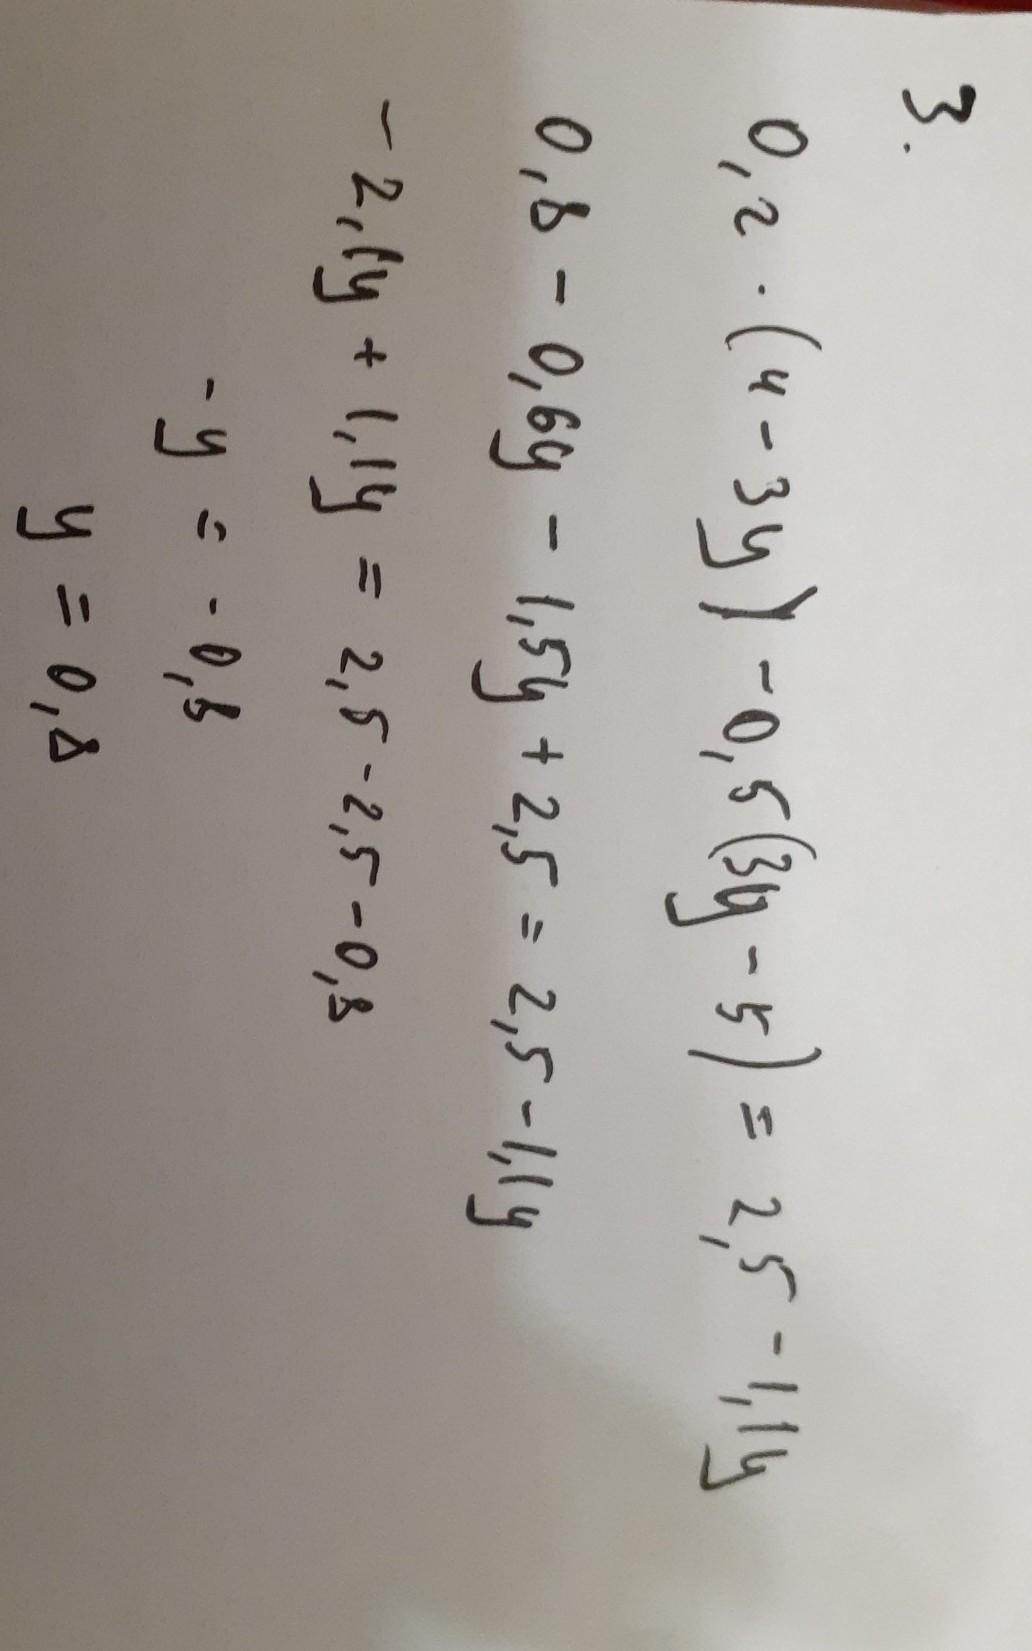 3.
0,2 · (4 - 3y) - 0,5(3y - 5) = 2,5 - 1,1y
0,8 - 0,6y - 1,5y + 2,5 = 2,5 - 1,1y
- 2,1y + 1,1y = 2,5 - 2,5 - 0,8
- y = - 0,8
y = 0,8